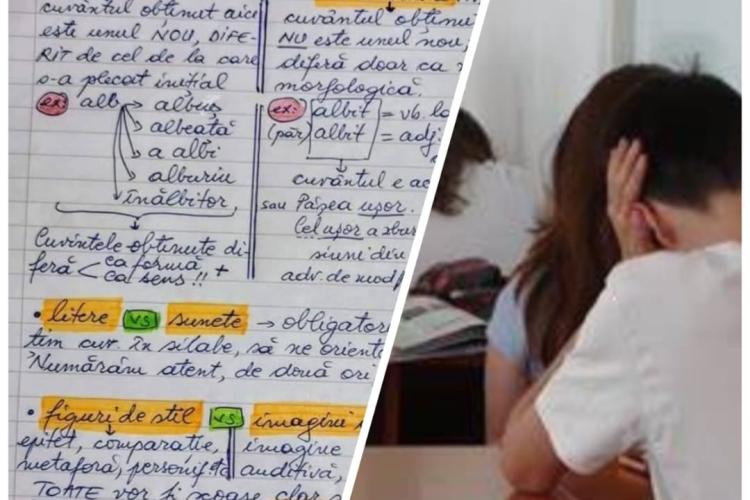 cuvântul obținut aici
este unul NOU, DIFE-
RIT de cel de la care
s-a plecat inițial
ex: alb → albuș
albeață
a albi
alburiu
înălbitor,
Cuvintele obținute di-
feră < ca formă +
ca sens !!
cuvântul obținu
NU este unul nou,
diferă doar ca
morfologică.
ex: albit = vb. la
(păr) albit = adj.
cuvântul e ac
sau Pășea ușor.
Cel ușor a zbur
siuni diu
adv. de mod
• litere vs sunete → obligator
tim cuv. în silabe, să ne orient
Numărăm atent, de două ori
• figuri de stil vs imagini
epitet, comparație,
metaforă, personif
imagine
auditivă,
TOATE vor fi scoase clar